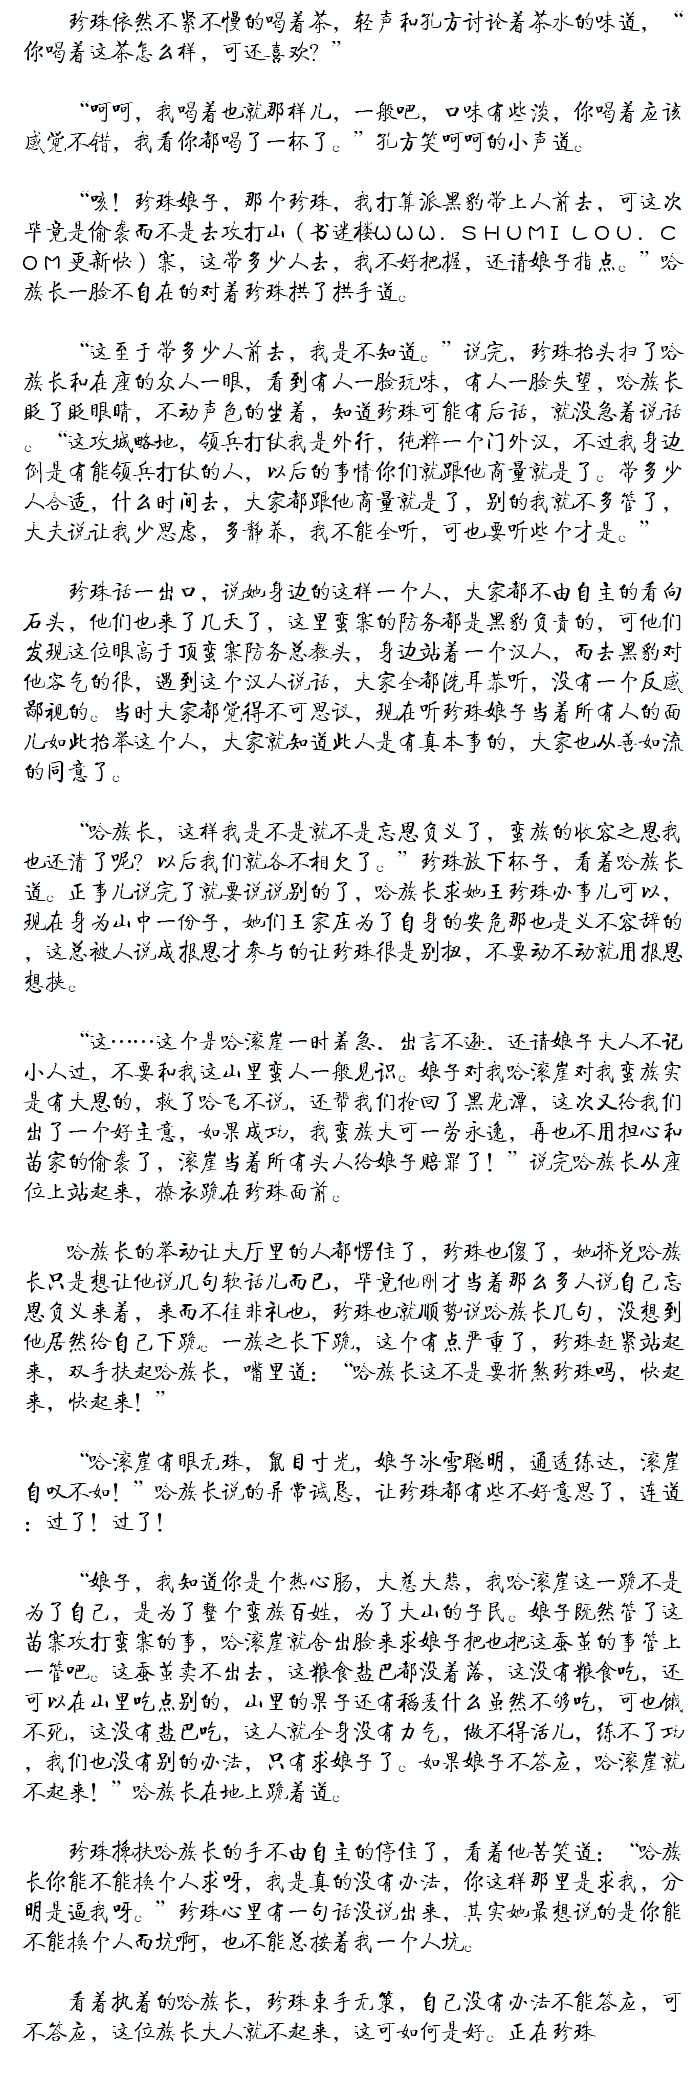 珍珠依然不紧不慢的喝着茶，轻声和孔方讨论着茶水的味道，“
你喝着这茶怎么样，可还喜欢？”
“呵呵，我喝着也就那样儿，一般吧，口味有些淡，你喝着应该
感觉不错，我看你都喝了一杯了。”孔方笑呵呵的小声道。
“咳！珍珠娘子，那个珍珠，我打算派黑豹带上人前去，可这次
毕竟是偷袭而不是去攻打山（书迷楼ＷＷＷ．ＳＨＵＭＩＬＯＵ．Ｃ
ＯＭ更新快）寨，这带多少人去，我不好把握，还请娘子指点。”哈
族长一脸不自在的对着珍珠拱了拱手道。
“这至于带多少人前去，我是不知道。”说完，珍珠抬头扫了哈
族长和在座的众人一眼，看到有人一脸玩味，有人一脸失望，哈族长
眨了眨眼睛，不动声色的坐着，知道珍珠可能有后话，就没急着说话
。“这攻城略地，领兵打仗我是外行，纯粹一个门外汉，不过我身边
倒是有能领兵打仗的人，以后的事情你们就跟他商量就是了。带多少
人合适，什么时间去，大家都跟他商量就是了，别的我就不多管了，
大夫说让我少思虑，多静养，我不能全听，可也要听些个才是。”
珍珠话一出口，说她身边的这样一个人，大家都不由自主的看向
石头，他们也来了几天了，这里蛮寨的防务都是黑豹负责的，可他们
发现这位眼高于顶蛮寨防务总教头，身边站着一个汉人，而去黑豹对
他客气的很，遇到这个汉人说话，大家全都洗耳恭听，没有一个反感
鄙视的。当时大家都觉得不可思议，现在听珍珠娘子当着所有人的面
儿如此抬举这个人，大家就知道此人是有真本事的，大家也从善如流
的同意了。
“哈族长，这样我是不是就不是忘恩负义了，蛮族的收容之恩我
也还清了呢？以后我们就各不相欠了。”珍珠放下杯子，看着哈族长
道。正事儿说完了就要说说别的了，哈族长求她王珍珠办事儿可以，
现在身为山中一份子，她们王家庄为了自身的安危那也是义不容辞的
，这总被人说成报恩才参与的让珍珠很是别扭，不要动不动就用报恩
想挟。
“这……这个是哈滚崖一时着急，出言不逊，还请娘子大人不记
小人过，不要和我这山里蛮人一般见识。娘子对我哈滚崖对我蛮族实
是有大恩的，救了哈飞不说，还帮我们抢回了黑龙潭，这次又给我们
出了一个好主意，如果成功，我蛮族大可一劳永逸，再也不用担心和
苗家的偷袭了，滚崖当着所有头人给娘子赔罪了！”说完哈族长从座
位上站起来，撩衣跪在珍珠面前。
哈族长的举动让大厅里的人都愣住了，珍珠也傻了，她挤兑哈族
长只是想让他说几句软话儿而已，毕竟他刚才当着那么多人说自己忘
恩负义来着，来而不往非礼也，珍珠也就顺势说哈族长几句，没想到
他居然给自己下跪。一族之长下跪，这个有点严重了，珍珠赶紧站起
来，双手扶起哈族长，嘴里道：“哈族长这不是要折煞珍珠吗，快起
来，快起来！”
“哈滚崖有眼无珠，鼠目寸光，娘子冰雪聪明，通透练达，滚崖
自叹不如！”哈族长说的异常诚恳，让珍珠都有些不好意思了，连道
：过了！过了！
“娘子，我知道你是个热心肠，大慈大悲，我哈滚崖这一跪不是
为了自己，是为了整个蛮族百姓，为了大山的子民。娘子既然管了这
苗寨攻打蛮寨的事，哈滚崖就舍出脸来求娘子把也把这蚕茧的事管上
一管吧。这蚕茧卖不出去，这粮食盐巴都没着落，这没有粮食吃，还
可以在山里吃点别的，山里的果子还有稻麦什么虽然不够吃，可也饿
不死，这没有盐巴吃，这人就全身没有力气，做不得活儿，练不了功
，我们也没有别的办法，只有求娘子了。如果娘子不答应，哈滚崖就
不起来！”哈族长在地上跪着道。
珍珠搀扶哈族长的手不由自主的停住了，看着他苦笑道：“哈族
长你能不能换个人求呀，我是真的没有办法，你这样那里是求我，分
明是逼我呀。”珍珠心里有一句话没说出来，其实她最想说的是你能
不能换个人而坑啊，也不能总按着我一个人坑。
看着执着的哈族长，珍珠束手无策，自己没有办法不能答应，可
不答应，这位族长大人就不起来，这可如何是好。正在珍珠